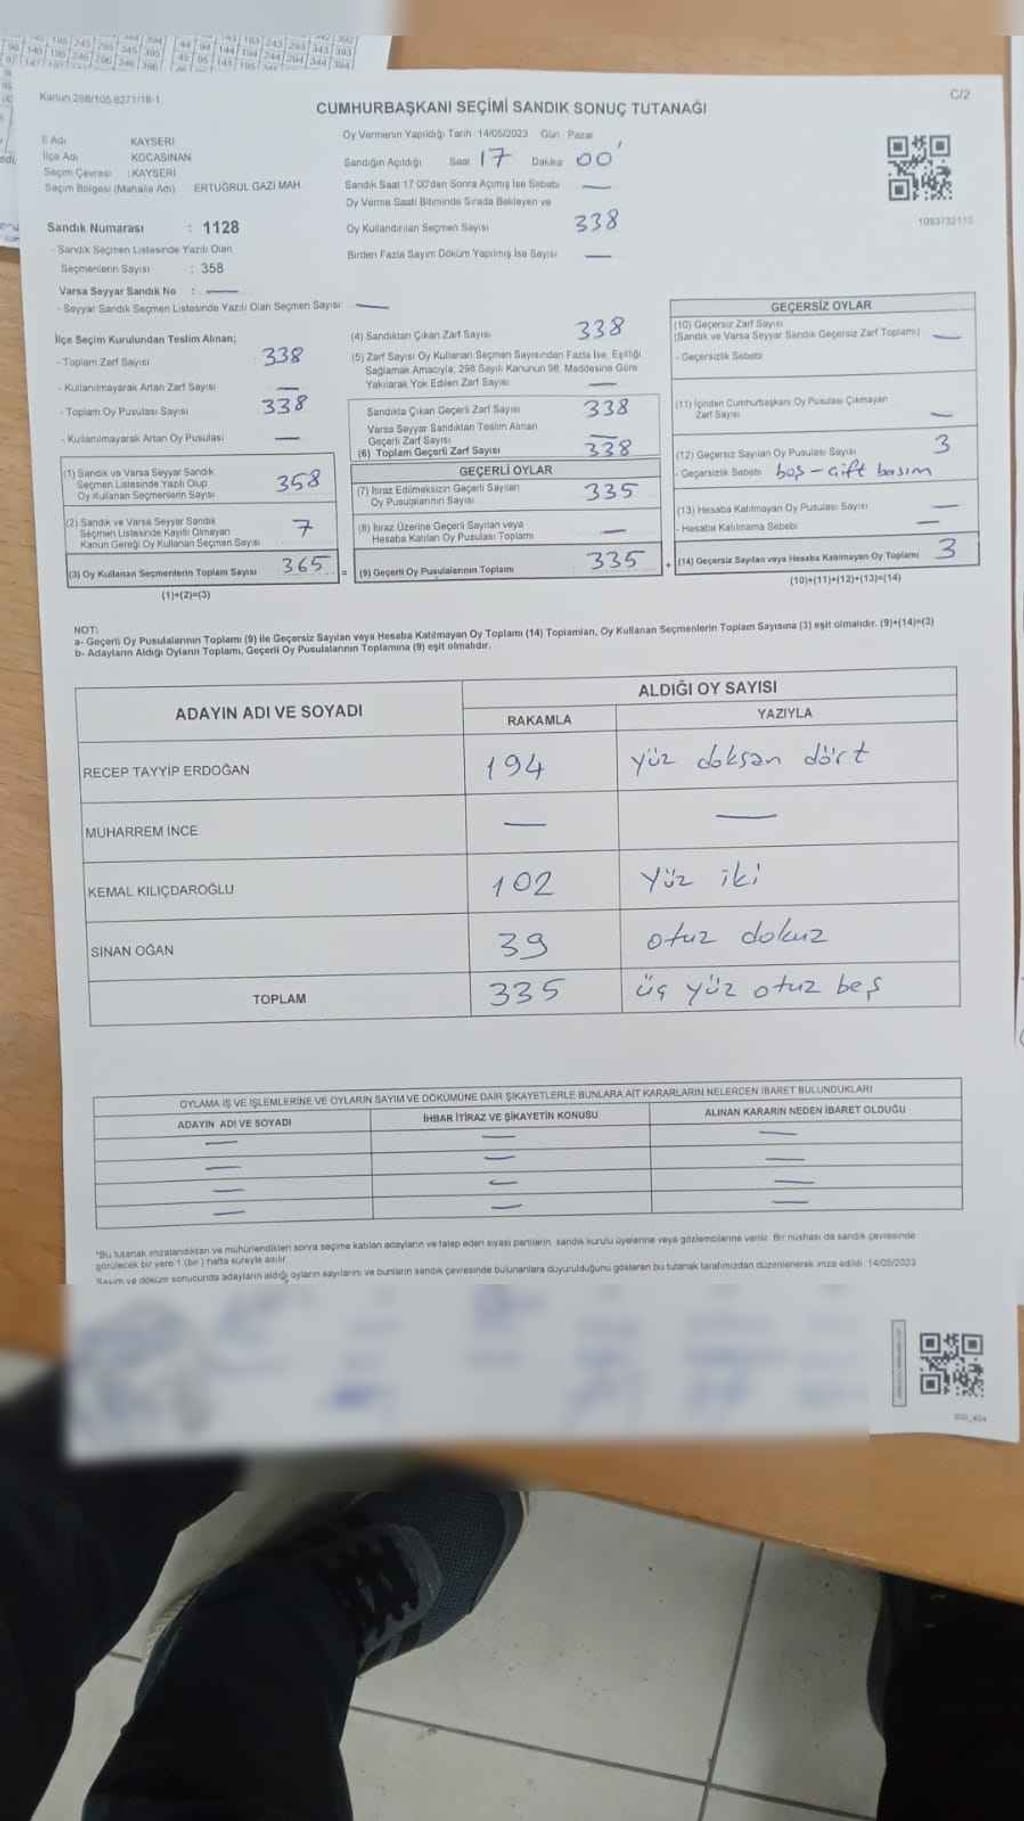 Kanun 298/105 6271/18-1
C/2
CUMHURBAŞKANI SEÇİMİ SANDIK SONUÇ TUTANAĞI
İl Adı KAYSERİ
İlçe Adı KOCASİNAN
Seçim Çevresi : KAYSERİ
Seçim Bölgesi (Mahalle Adı) ERTUĞRUL GAZİ MAH.
Sandık Numarası : 1128
- Sandık Seçmen Listesinde Yazılı Olan
Seçmenlerin Sayısı : 358
Varsa Seyyar Sandık No : —
- Seyyar Sandık Seçmen Listesinde Yazılı Olan Seçmen Sayısı —
Oy Vermenin Yapıldığı Tarih :14/05/2023 Gün : Pazar
Sandığın Açıldığı Saat 17 Dakika 00'
Sandık Saat 17:00'den Sonra Açılmış İse Sebebi —
Oy Verme Saati Bitiminde Sırada Bekleyen ve
Oy Kullandırılan Seçmen Sayısı 338
Birden Fazla Sayım Döküm Yapılmış İse Sayısı —
1093732115
İlçe Seçim Kurulundan Teslim Alınan;
- Toplam Zarf Sayısı 338
- Kullanılmayarak Artan Zarf Sayısı —
- Toplam Oy Pusulası Sayısı 338
- Kullanılmayarak Artan Oy Pusulası —
(1) Sandık ve Varsa Seyyar Sandık
Seçmen Listesinde Yazılı Olup
Oy Kullanan Seçmenlerin Sayısı 358
(2) Sandık ve Varsa Seyyar Sandık
Seçmen Listesinde Kayıtlı Olmayan
Kanun Gereği Oy Kullanan Seçmen Sayısı 7
(3) Oy Kullanan Seçmenlerin Toplam Sayısı 365 =
(1)+(2)=(3)
(4) Sandıktan Çıkan Zarf Sayısı 338
(5) Zarf Sayısı Oy Kullanan Seçmen Sayısından Fazla İse, Eşitliği
Sağlamak Amacıyla; 298 Sayılı Kanunun 98. Maddesine Göre
Yakılarak Yok Edilen Zarf Sayısı —
Sandıkta Çıkan Geçerli Zarf Sayısı 338
Varsa Seyyar Sandıktan Teslim Alınan
Geçerli Zarf Sayısı —
(6) Toplam Geçerli Zarf Sayısı 338
GEÇERLİ OYLAR
(7) İtiraz Edilmeksizin Geçerli Sayılan
Oy Pusulalarının Sayısı 335
(8) İtiraz Üzerine Geçerli Sayılan veya
Hesaba Katılan Oy Pusulası Toplamı —
(9) Geçerli Oy Pusulalarının Toplamı 335 +
GEÇERSİZ OYLAR
(10) Geçersiz Zarf Sayısı
(Sandık ve Varsa Seyyar Sandık Geçersiz Zarf Toplamı) —
- Geçersizlik Sebebi
(11) İçinden Cumhurbaşkanı Oy Pusulası Çıkmayan
Zarf Sayısı —
(12) Geçersiz Sayılan Oy Pusulası Sayısı 3
- Geçersizlik Sebebi boş - çift basım
(13) Hesaba Katılmayan Oy Pusulası Sayısı —
- Hesaba Katılmama Sebebi —
(14) Geçersiz Sayılan veya Hesaba Katılmayan Oy Toplamı 3
(10)+(11)+(12)+(13)=(14)
NOT:
a- Geçerli Oy Pusulalarının Toplamı (9) ile Geçersiz Sayılan veya Hesaba Katılmayan Oy Toplamı (14) Toplamları, Oy Kullanan Seçmenlerin Toplam Sayısına (3) eşit olmalıdır. (9)+(14)=(3)
b- Adayların Aldığı Oyların Toplamı, Geçerli Oy Pusulalarının Toplamına (9) eşit olmalıdır.
ADAYIN ADI VE SOYADI
ALDIĞI OY SAYISI
RAKAMLA YAZIYLA
RECEP TAYYİP ERDOĞAN 194 yüz doksan dört
MUHARREM İNCE — —
KEMAL KILIÇDAROĞLU 102 Yüz iki
SİNAN OĞAN 39 otuz dokuz
TOPLAM 335 üç yüz otuz beş
OYLAMA İŞ VE İŞLEMLERİNE VE OYLARIN SAYIM VE DÖKÜMÜNE DAİR ŞİKAYETLERLE BUNLARA AİT KARARLARIN NELERDEN İBARET BULUNDUKLARI
ADAYIN ADI VE SOYADI İHBAR İTİRAZ VE ŞİKAYETİN KONUSU ALINAN KARARIN NEDEN İBARET OLDUĞU
— — —
— — —
— — —
— — —
*Bu tutanak imzalandıktan ve mühürlendikten sonra seçime katılan adayların ve talep eden siyasi partilerin, sandık kurulu üyelerine veya gözlemcilerine verilir. Bir nüshası da sandık çevresinde
görülecek bir yere 1 (bir) hafta süreyle asılır.
Sayım ve döküm sonucunda adayların aldığı oyların sayılarını ve bunların sandık çevresinde bulunanlara duyurulduğunu gösteren bu tutanak tarafımızdan düzenlenerek imza edildi. 14/05/2023